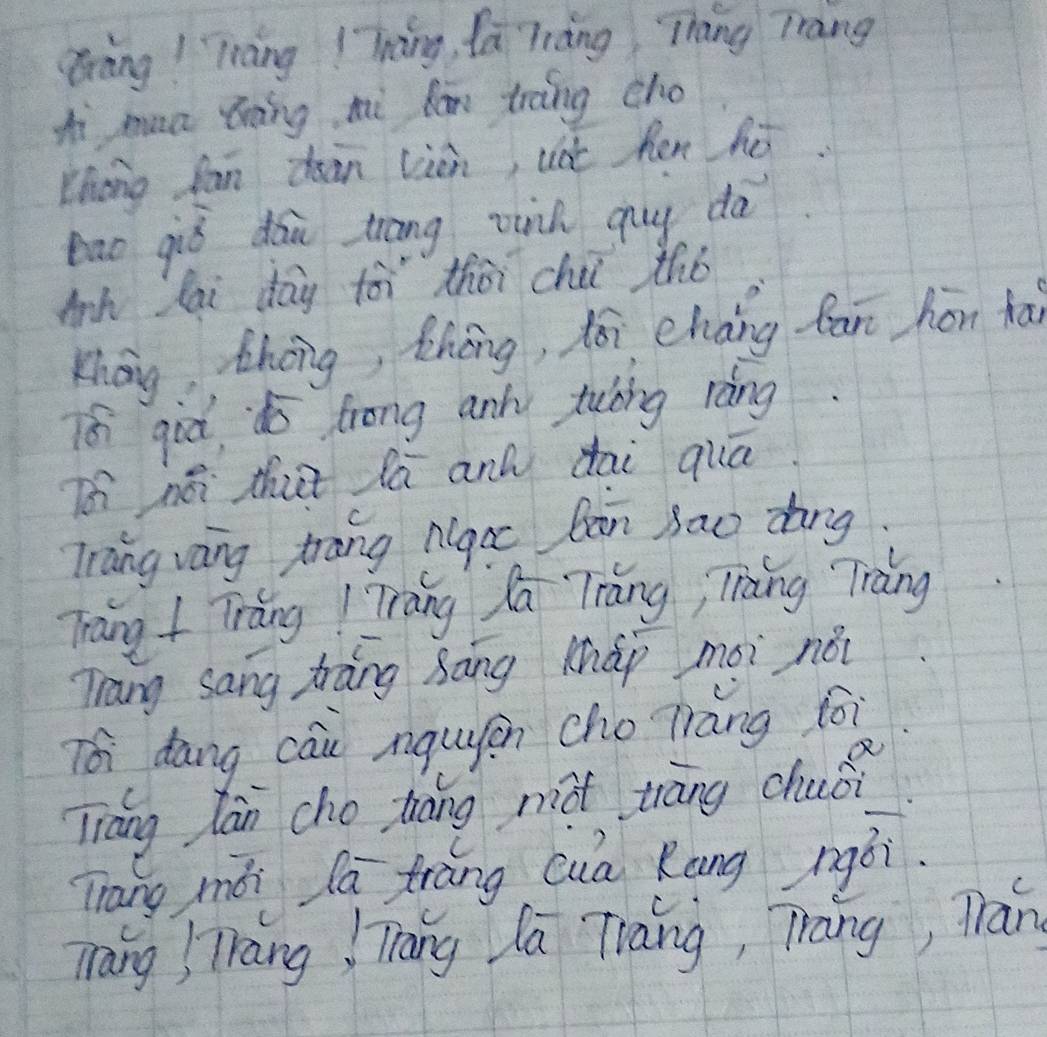 Trăng! Trăng! Trăng, là Trăng, Trăng Trăng
Ai mua trăng, tôi bán trăng cho.
Không bán đoàn viên, ước hẹn hò.
Bao giờ đậu trạng vinh quy đã.
Anh lại đây tôi thối chữ thơ.
Không, không, không, tôi chẳng bán hồn
Tôi giả, đò trong anh tưởng rằng.
Tôi nói thiệt là anh dại quá.
Trăng vàng trăng ngọc bán sao đang.
Trăng! Trăng! Trăng là Trăng, Trăng Trăng.
Trăng sáng trăng sáng khắp mọi nơi.
Tôi đang cầu nguyện cho Trăng tôi.
Trăng lần cho trăng một tràng chuỗi.
Trăng mới là trăng của Rạng ngời.
Trăng! Trăng! Trăng là Trăng, Trăng, Trăn